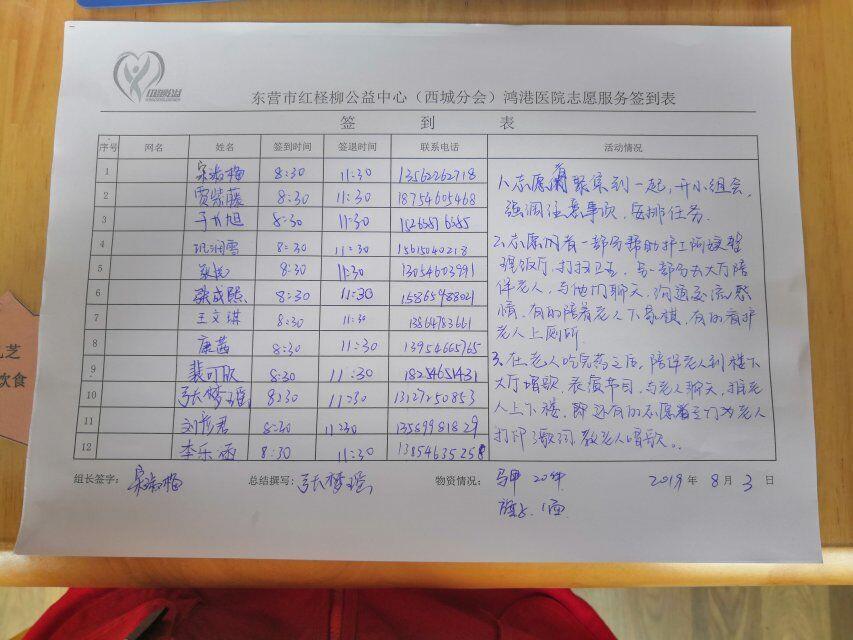 东营市红柽柳公益中心（西城分会）鸿港医院志愿服务签到表
签 到 表
序号 网名 姓名 签到时间 签退时间 联系电话 活动情况
1 8:30 11:30 13562262718
2 贾紫藤 8:30 11:30 18754605468
3 8:30 11:30
4 巩润雪 8:30 11:30 15615040218
5 8:30 11:30 13054603991
6 张成熙 8:30 11:30 15865988021
7 王文琪 8:30 11:30 13864783661
8 康茜 8:30 11:30 13954665765
9 裴可欣 8:30 11:30 18254651431
10 张梦瑶 8:30 11:30 13127250853
11 刘彦君 8:30 11:30 13589981829
12 李乐函 8:30 11:30 13854635258
1、志愿者聚集到一起，开小组会，
强调注意事项，安排任务。
2、志愿者有一部分帮助护工阿姨整
理饭厅，打扫卫生，另一部分去大厅陪
伴老人，与他们聊天，沟通交流感
情，有的陪着老人下象棋，有的看护
老人上厕所。
3、在老人吃完药之后，陪伴老人到楼下
大厅唱歌，表演节目，与老人聊天，
人上下楼，还有的志愿者专门为老人
打印歌词，教老人唱歌。
组长签字： 总结撰写：张梦瑶 物资情况：马甲 20件 2019 年 8 月 3 日
旗子 1面
芝
饮食